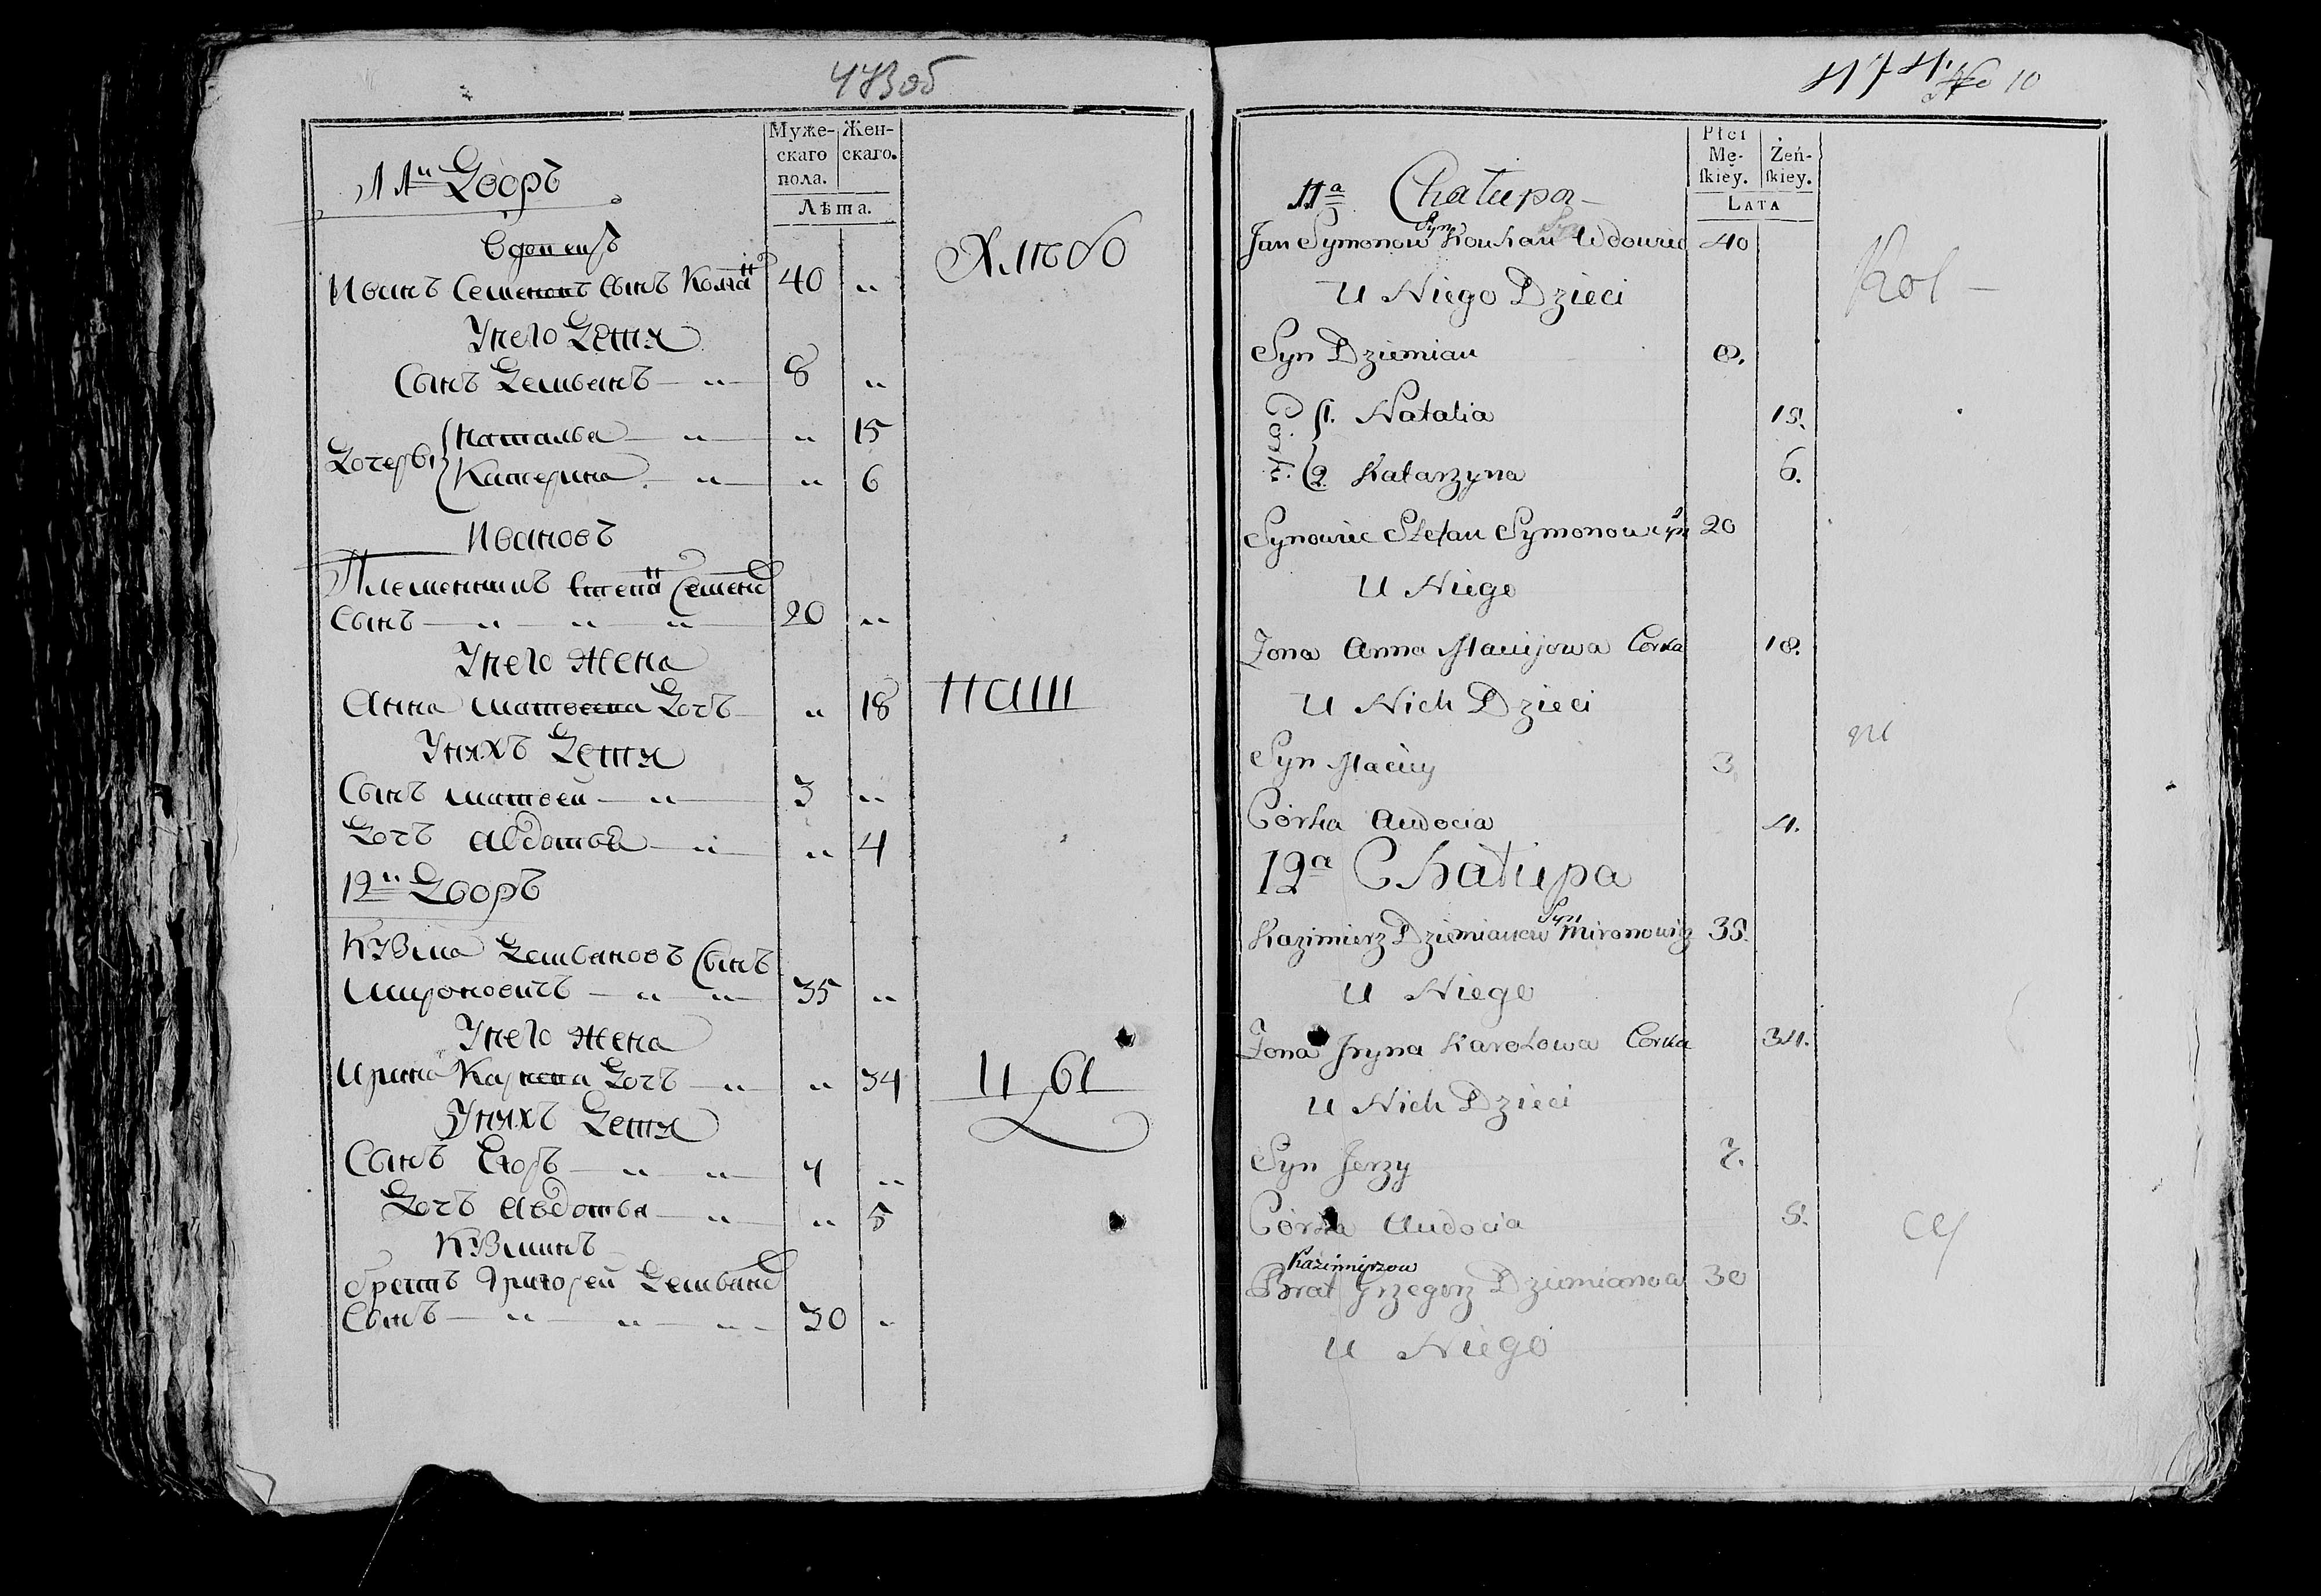 473об
Муже- Жен-
скаго скаго.
пола.
Лѣта.
11й Дворъ
Вдовецъ
Иванъ Семеновъ Сынъ 40 „
Унего Детя
Сынъ Демьянъ — „ — 8 „
Дочеры { Наталья — „ — „ 15
Катерина — „ — „ 6
Ивановъ
Племянникъ Степан Семено
Сынъ — „ — „ — „ — 20 „
Унего Жена
Анна Матвеева Дочь — „ 18
Унихъ Детя
Сынъ Матвей — „ — 3 „
Дочь Авдотья — „ — „ 4
12й Дворъ
Кузма Демьяновъ Сынъ
Мироновичъ — „ — „ — 35 „
Унего Жена
Ирина Дочь — „ — „ 34
Унихъ Детя
Сынъ Егоръ — „ — „ — „
Дочь Авдотья — „ — „ 5
Кузминъ
братъ Григорей Демьяно
Сынъ — „ — „ — „ — 30 „
474 No 10
Płci
Mę- Żeń-
ſkiey. ſkiey.
LATA
11a Chałupa
Jan Symonow Syn Wdowiec 40
U Niego Dzieci
Syn Dziemian 8.
1. Natalia 15.
2. Katarzyna 6.
Synowiec Stefan Symonow Syn 20
U Niego
Żona Anna Maciejowa Corka 18.
U Nich Dzieci
Syn Maciey 3
Córka Audocia 4.
12a Chałupa
Kazimierz Dziemianow Syn Mironowicz 35.
U Niego
Żona Jryna Corka 34.
U Nich Dzieci
Syn Jerzy 7.
Córka Audocia 5.
Kazimierzow
Brat Grzegorz Dziemianow 30
U Niego